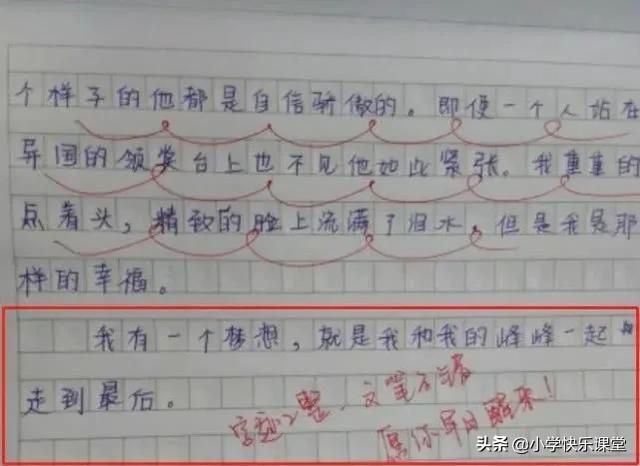 个样子的他都是自信骄傲的。即便一个人站在
异国的领奖台上也不见他如此紧张。我重重的
点着头，精致的脸上流满了泪水，但是我是那
样的幸福。
我有一个梦想，就是我和我的峰峰一起
走到最后。
字迹工整，文笔不错
愿你早日醒来！
头条 @小学快乐课堂